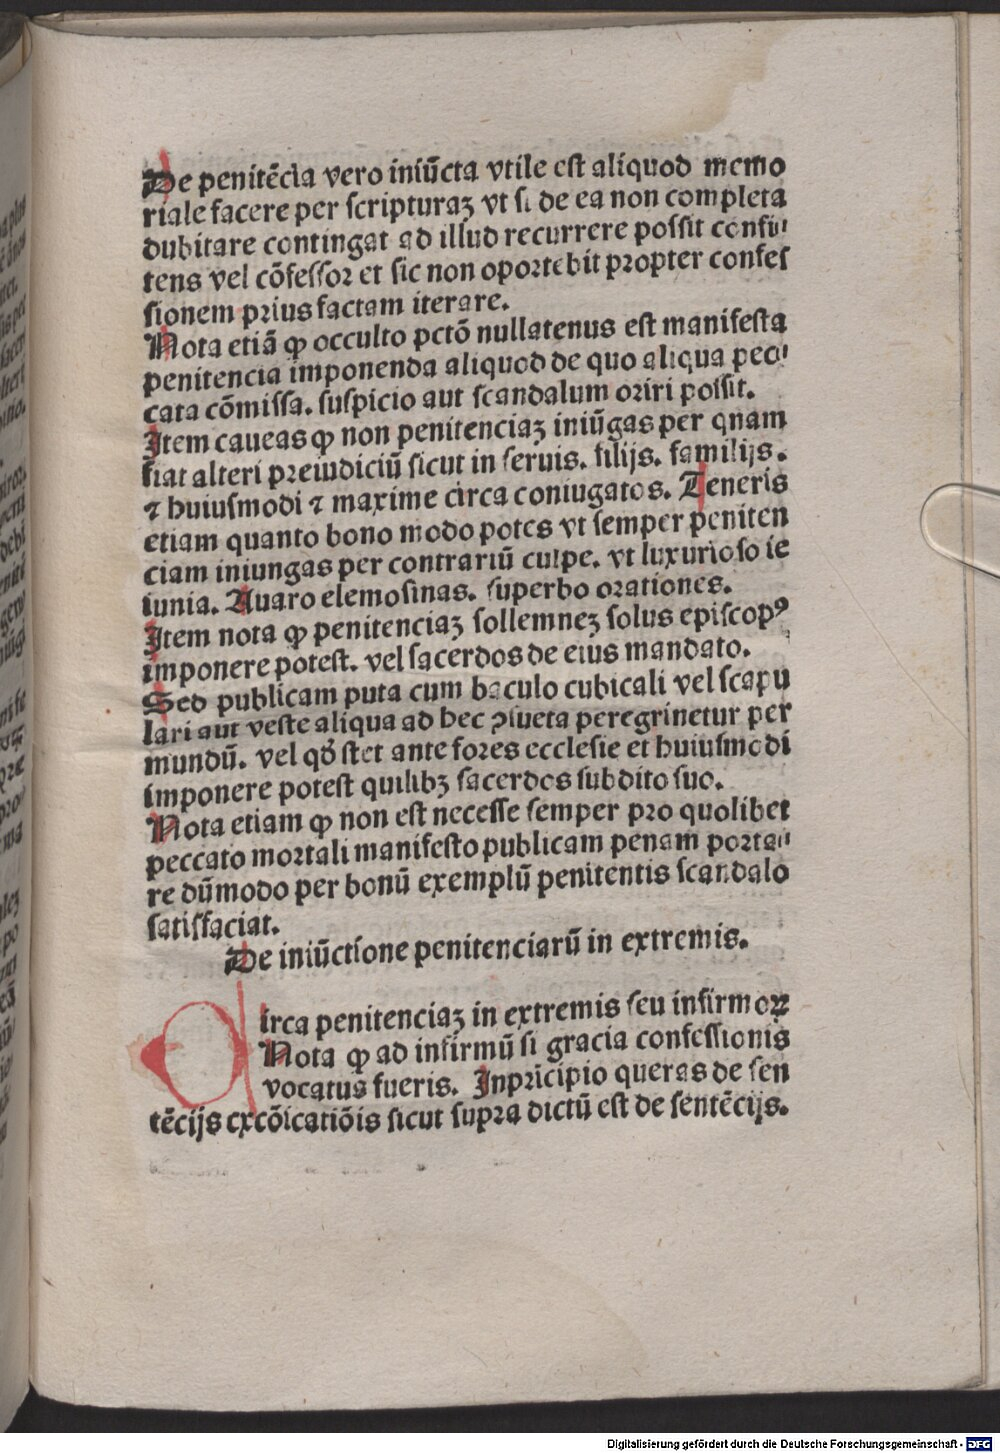 De penitẽcia vero iniũcta vtile est aliquod memo
riale facere per scripturaꝫ vt si de ea non completa
dubitare contingat ad illud recurrere possit confi⸗
tens vel cõfessor et sic non oportebit propter confes
sionem prius factam iterare.
Nota etiã ꝙ occulto pctõ nullatenus est manifesta
penitencia imponenda aliquod de quo aliqua pec⸗
cata cõmissa. suspicio aut scandalum oriri possit.
Item caueas ꝙ non penitenciaꝫ iniũgas per qnam
fiat alteri preiudiciũ sicut in seruis. filijs. familijs.
⁊ huiusmodi ⁊ maxime circa coniugatos. Teneris
etiam quanto bono modo potes vt semper peniten
ciam iniungas per contrariũ culpe. vt luxurioso ie
iunia. Auaro elemosinas. superbo orationes.
Item nota ꝙ penitenciaꝫ sollemneꝫ solus episcopꝰ
imponere potest. vel sacerdos de eius mandato.
Sed publicam puta cum baculo cubicali vel scapu
lari aut veste aliqua ad hec ꝯsueta peregrinetur per
mundũ. vel qđ stet ante fores ecclesie et huiusmodi
imponere potest quilibꝫ sacerdos subdito suo.
Nota etiam ꝙ non est necesse semper pro quolibet
peccato mortali manifesto publicam penam porta⸗
re dũmodo per bonũ exemplũ penitentis scandalo
satisfaciat.
De iniũctione penitenciarũ in extremis.
Circa penitenciaꝫ in extremis seu infirmoꝝ
Nota ꝙ ad infirmũ si gracia confessionis
vocatus fueris. Inprĩcipio queras de sen
tẽcijs excõicatiõis sicut supra dictũ est de sentẽcijs.
Digitalisierung gefördert durch die Deutsche Forschungsgemeinschaft - DFG